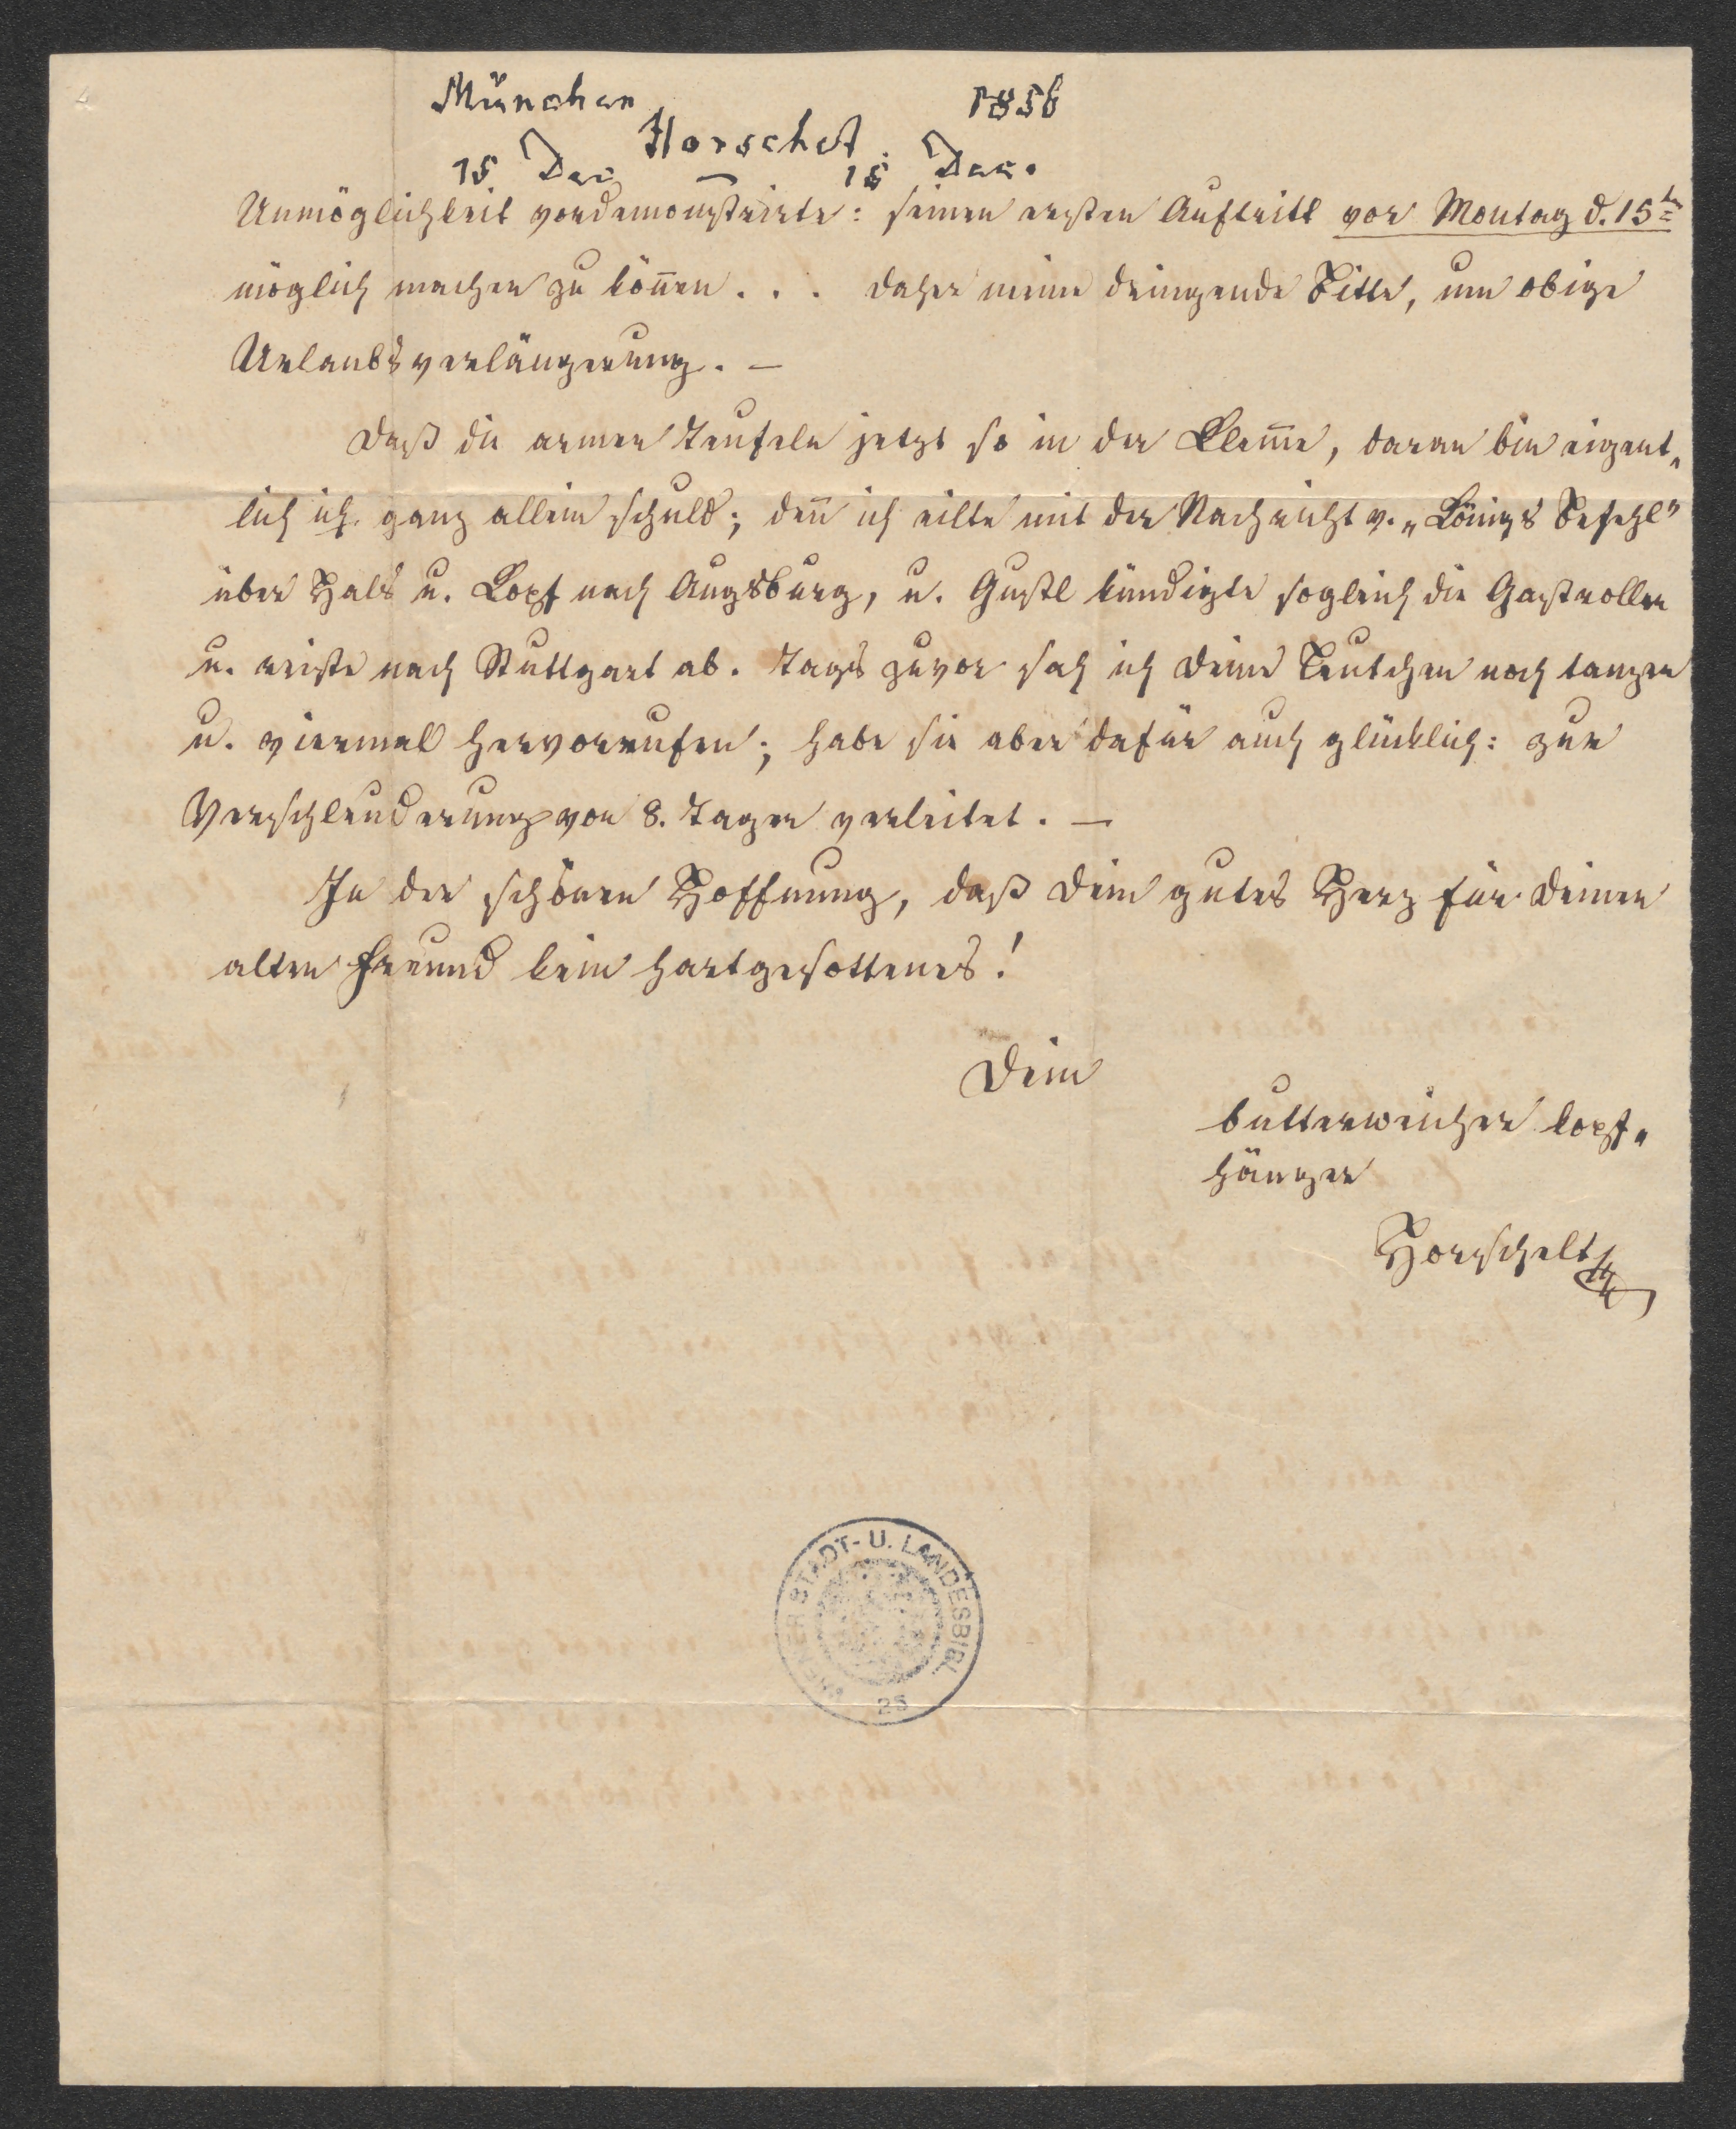 München 1856
Horschelt
15 Dec 15 Dec.
Unmöglichkeit vordemonstrirte: seinen ersten Auftritt vor Montag d. 15ten
möglich machen zu koñen . . . daher meine dringende Bitte, um obige
Urlaubsverlängerung. —
Daß die armen Teufeln jetzt so in der Klem̃e, daran bin eigent„
lich ich ganz allein schuld; deñ ich eilte mit der Nachricht v. „Königs Befehl"
über Hals u. Kopf nach Augsburg, u. Gustl kündigte sogleich die Gastrollen
u. reiste nach Stuttgart ab. Tags zuvor sah ich deine Leutchen noch tanzen
u. viermal hervorrufen; habe sie aber dafür auch glücklich: zur
Verschleuderung von 8. Tagen verleitet. —
In der schönen Hoffnung, daß dein gutes Herz für deinen
alten Freund kein hartgesottenes!
Dein
butterweicher Kopf„
hänger
Horschelt
WIENER STADT- U. LANDESBIBL.
25